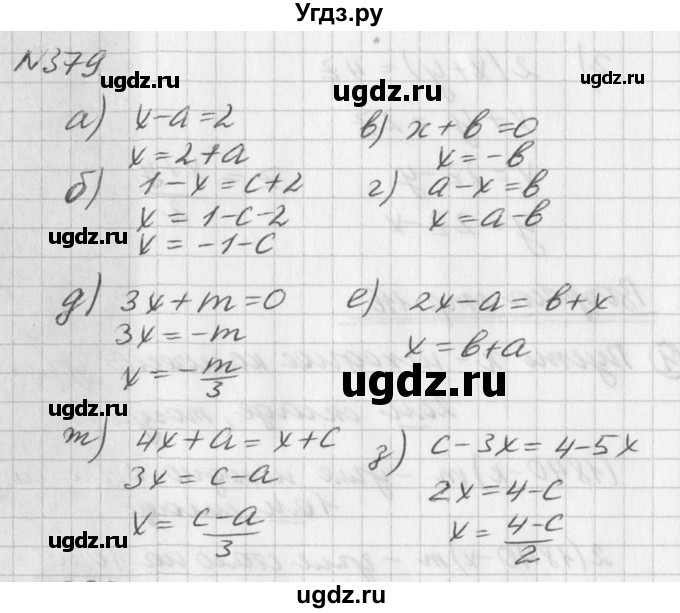 Угдз.ру
№379
а) x-a=2
x=2+a
б) 1-x=c+2
x=1-c-2
x=-1-c
в) x+в=0
x=-в
г) a-x=в
x=a-в
д) 3x+m=0
3x=-m
x=-m/3
е) 2x-a=в+x
x=в+a
ж) 4x+a=x+c
3x=c-a
x=c-a/3
з) c-3x=4-5x
2x=4-c
x=4-c/2
ugdz.ru
ugdz.ru
ugdz.ru
ugdz.ru
ugdz.ru
ugdz.ru
ugdz.ru
ugdz.ru
Угдз.ру